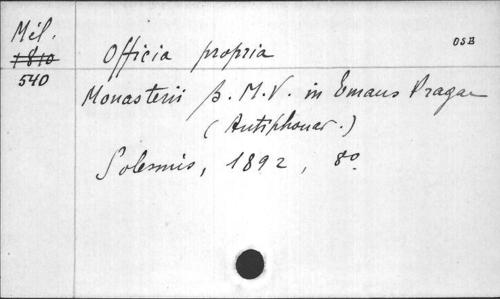 Mél.
1810
540
OSB
Officia propria
Monasterii B. M. V. in Emaus Pragae
(Antiphonar.)
Solesmis, 1892, 8º